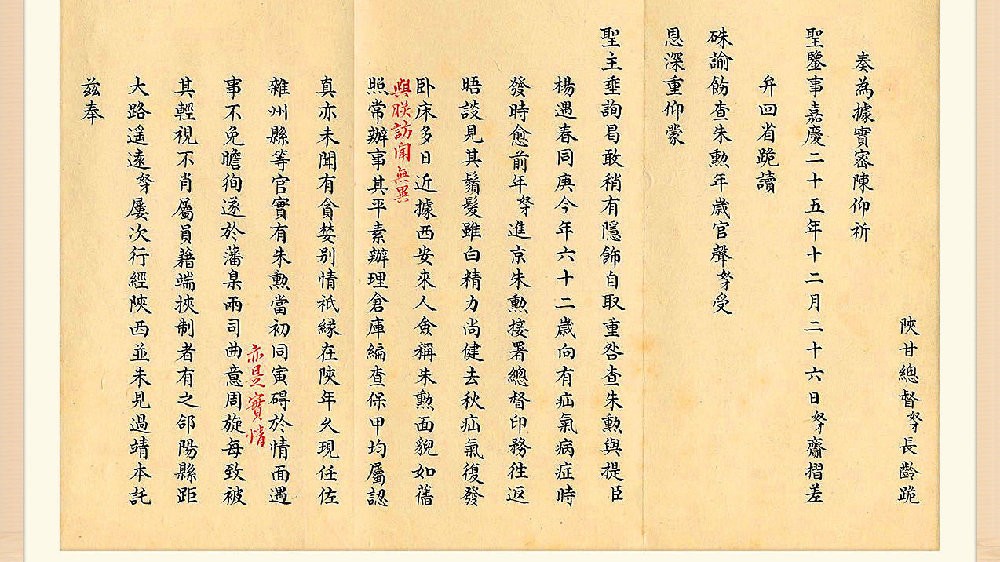 陝甘總督奴才長齡跪
奏為據實密陳仰祈
聖鑒事嘉慶二十五年十二月二十六日奴才齎摺差
弁回省跪讀
硃諭飭查朱勲年歲官聲奴才受
恩深重仰蒙
聖主垂詢曷敢稍有隱飾自取重咎查朱勲與提臣
楊遇春同庚今年六十二歲向有疝氣病症時
發時愈前年奴才進京朱勲接署總督印務往返
晤談見其鬚髮雖白精力尚健去秋疝氣復發
卧床多日近據西安來人僉稱朱勲面貌如舊
與朕訪聞無異
照常辦事其平素辦理倉庫編查保甲均屬認
真亦未聞有貪婪別情祇緣在陝年久現任佐
雜州縣等官實有朱勲當初同寅碍於情面遇
亦是實情
事不免瞻徇遂於藩臬兩司曲意周旋每致被
其輕視不肖屬員藉端挾制者有之郃陽縣距
大路遥遠奴才屢次行經陝西並未見過靖本託
兹奉